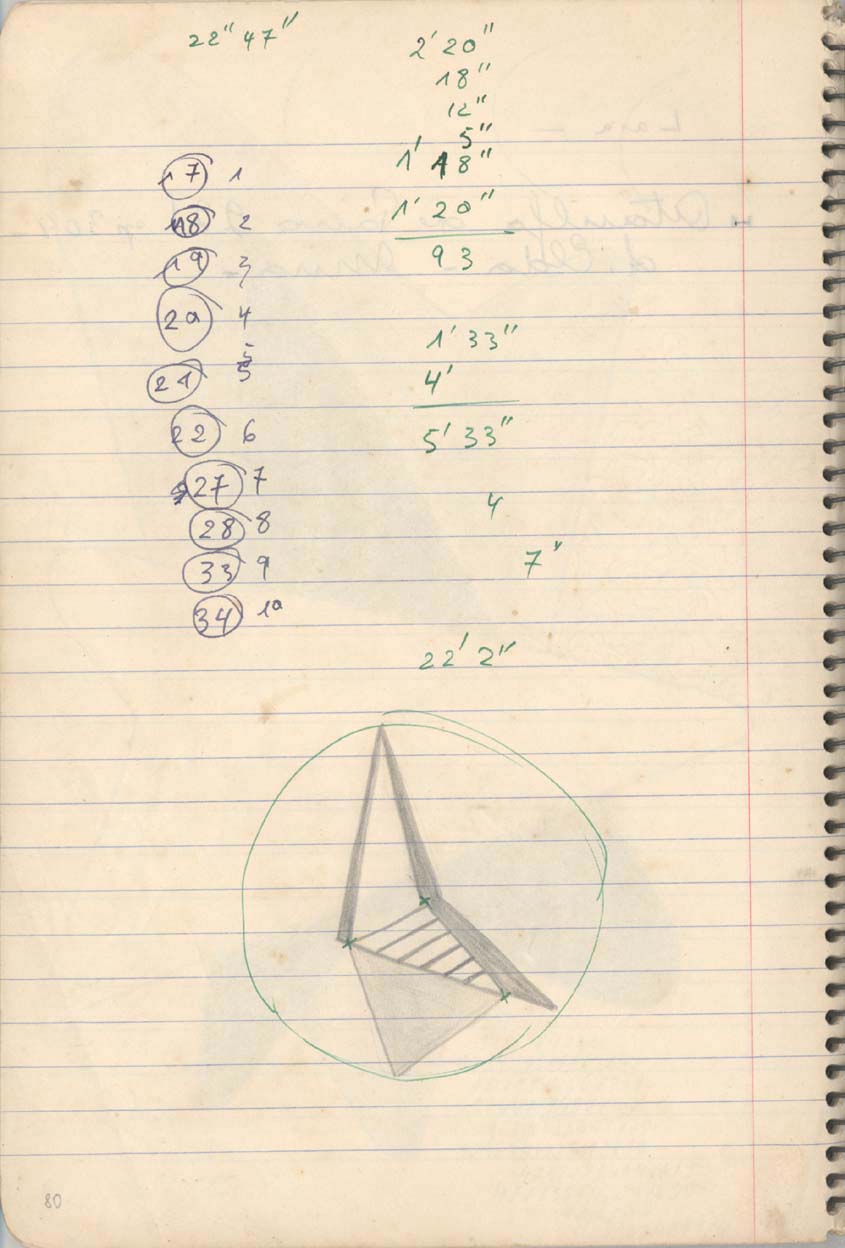 22" 47"
2' 20"
18"
12"
5"
1' 18"
1' 20"
93
17 1
18 2
19 3
20 4
21 5
22 6
27 7
28 8
33 9
34 10
1' 33"
4'
5' 33"
4
7"
22' 2"
80